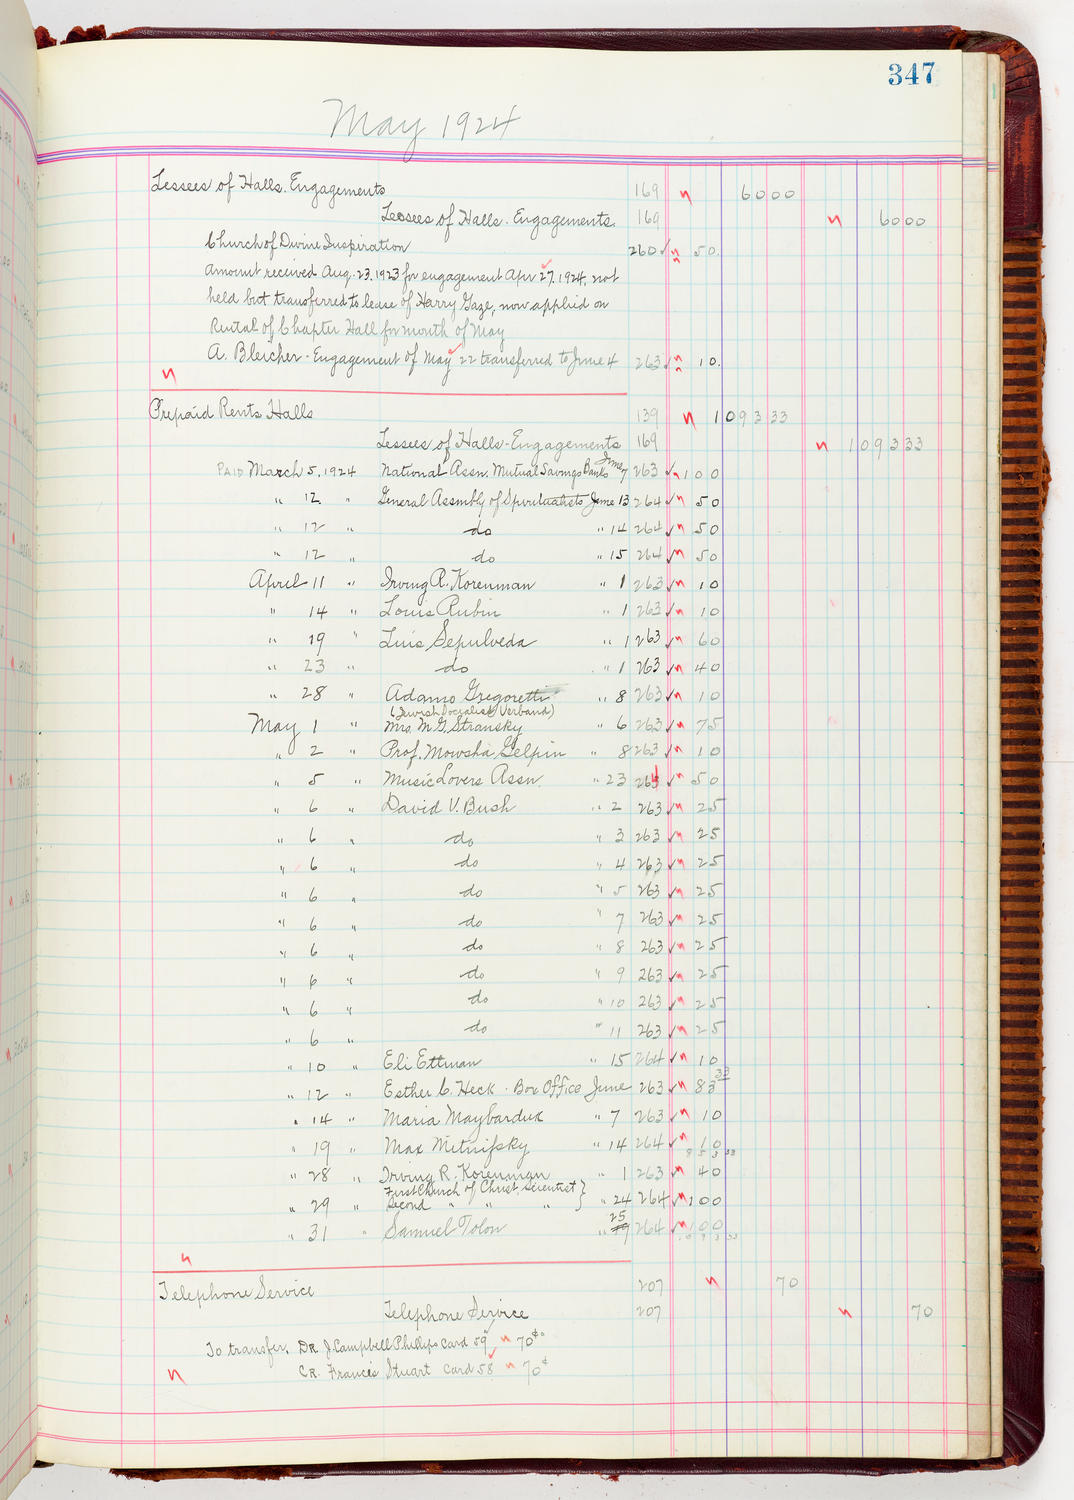 347
May 1924
Lessees of Halls. Engagements 169 6000
Lessees of Halls. Engagements. 169 6000
Church of Divine Inspiration 260 50.
amount received Aug. 23. 1923 for engagement Apr 27. 1924, not
held but transferred to lease of Harry Gaze, now applied on
Rental of Chapter Hall for month of May
A. Bleicher - Engagement of May 22 transferred to June 4 263 10.
Prepaid Rents Halls 139 1093 33
Lessees of Halls-Engagements 169 1093 33
PAID March 5, 1924 National Assn. Mutual Savings Banks June 7 263 100
" 12 " General Assembly of Spiritualists June 13 264 50
" 12 " do " 14 264 50
" 12 " do " 15 264 50
April 11 " Irving R. Korenman " 1 263 10
" 14 " Louis Rubin " 1 263 10
" 19 " Luis Sepulveda " 1 263 60
" 23 " do " 1 263 40
" 28 " Adamo Gregoretti " 8 263 10
(Jewish Socialist Verband)
May 1 " Mrs. M. G. Stransky " 6 263 75
" 2 " Prof. Mowsha Gelpin " 8 263 10
" 5 " Music Lovers Assn. " 23 264 50
" 6 " David V. Bush " 2 263 25
" 6 " do " 3 263 25
" 6 " do " 4 263 25
" 6 " do " 5 263 25
" 6 " do " 7 263 25
" 6 " do " 8 263 25
" 6 " do " 9 263 25
" 6 " do " 10 263 25
" 6 " do " 11 263 25
" 10 " Eli Ettman " 15 264 10
" 12 " Esther C. Heck - Box Office June 263 83 33
" 14 " Maria Maybarduk " 7 263 10
" 19 " Max Metnifsky " 14 264 10
853 33
" 28 " Irving R. Korenman " 1 263 40
First Church of Christ, Scientist }
" 29 " Second " " " } " 24 264 100
" 31 " Samuel Tolon " 25 264 100
1093 33
Telephone Service 207 70
Telephone Service 207 70
To transfer. DR J. Campbell Phillips Card 59 70¢
CR. Francis Stuart Card 58 70¢